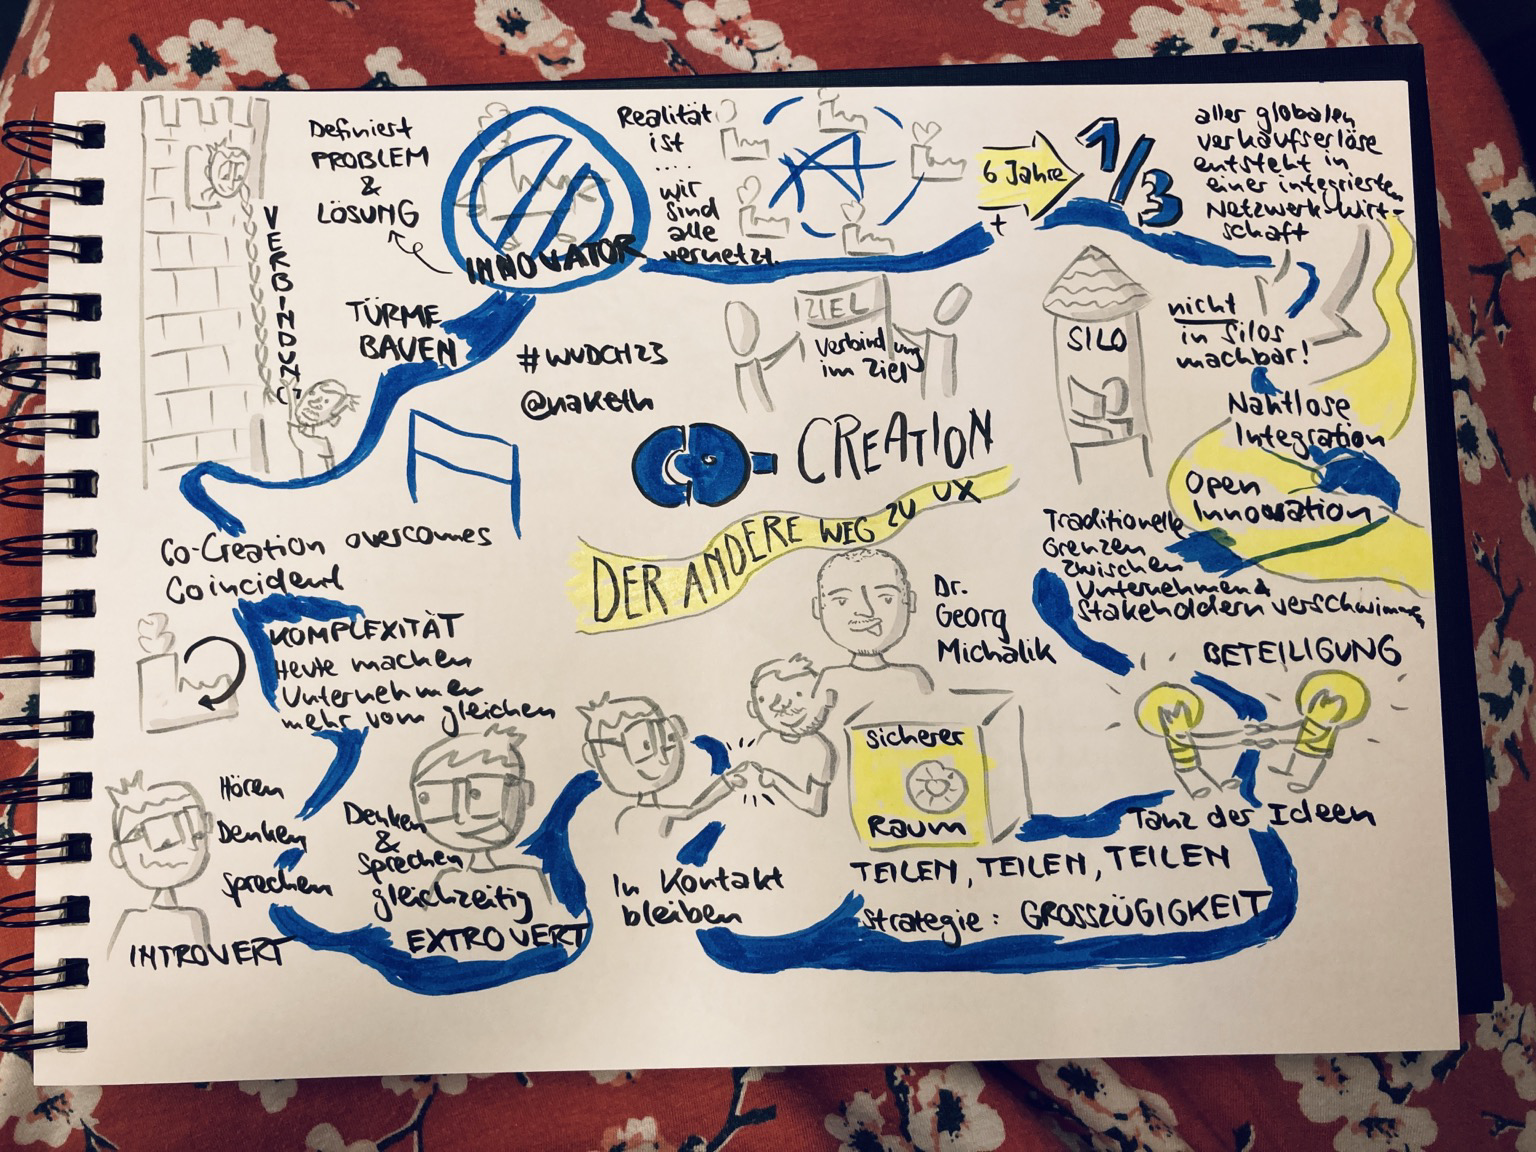 VERBINDUNG
Definiert
PROBLEM
&
LÖSUNG
INNOVATOR
TÜRME
BAUEN
Realität
ist
...
wir
sind
alle
vernetzt.
6 Jahre
+
1/3
aller globalen
verkaufserlöse
entsteht in
einer integrierten
Netzwerk-Wirt-
schaft
#WUDCH23
@naketh
ZIEL
Verbindung
im Ziel
SILO
nicht
in Silos
machbar!
Nahtlose
Integration
Open
Innovation
CO-CREATION
DER ANDERE WEG ZU UX
Dr.
Georg
Michalik
Traditionelle
Grenzen
zwischen
Unternehmen &
Stakeholdern verschwimmen
BETEILIGUNG
Tanz der Ideen
Co-Creation overcomes
Coincident
KOMPLEXITÄT
Heute machen
Unternehmen
mehr vom gleichen
Hören
Denken
sprechen
INTROVERT
Denken
&
Sprechen
gleichzeitig
EXTROVERT
In Kontakt
bleiben
sicherer
Raum
TEILEN, TEILEN, TEILEN
Strategie: GROSSZÜGIGKEIT